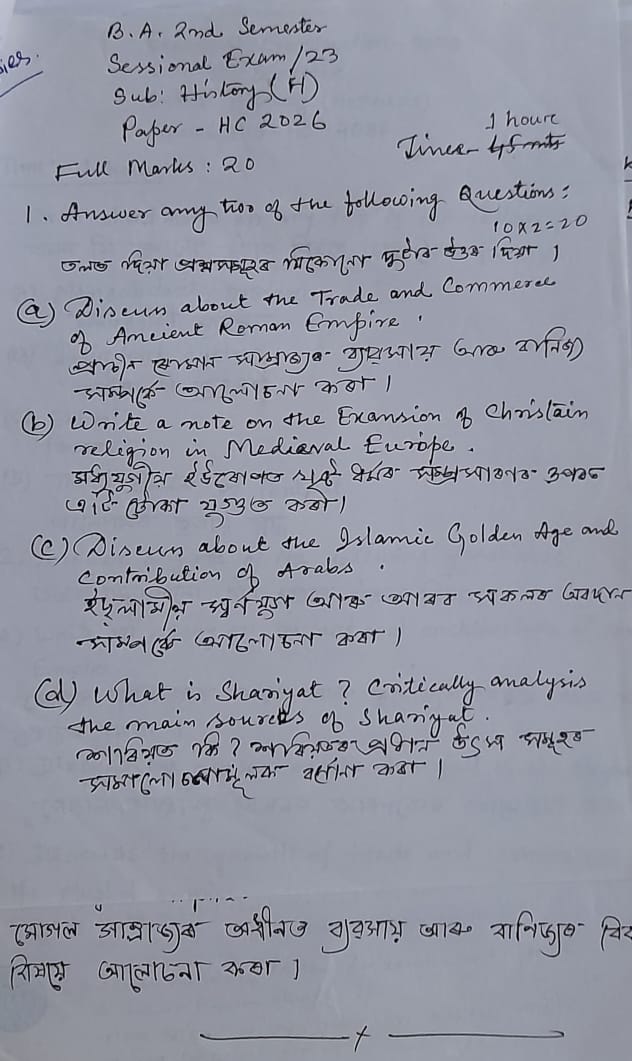 ies.
B.A. 2nd Semester
Sessional Exam/23
Sub: History (H)
Paper - HC 2026
1 hour
Time - 45 mts
Full Marks : 20
1. Answer any two of the following Questions:
10x2=20
তলত দিয়া প্ৰশ্নসমূহৰ যিকোনো দুটাৰ উত্তৰ দিয়া ।
(a) Discuss about the Trade and Commerce
of Ancient Roman Empire.
প্ৰাচীন ৰোমান সাম্ৰাজ্যৰ ব্যৱসায় আৰু বানিজ্য
সম্পৰ্কে আলোচনা কৰা ।
(b) Write a note on the Exansion of Christain
religion in Medieval Europe.
মধ্যযুগীয় ইউৰোপত খৃষ্ট ধৰ্মৰ সম্প্ৰসাৰণৰ ওপৰত
এটি টোকা যুগুত কৰা ।
(c) Discuss about the Islamic Golden Age and
Contribution of Arabs.
ইছলামীয় স্বৰ্নযুগ আৰু আৰব সকলৰ অৱদান
সম্পৰ্কে আলোচনা কৰা ।
(d) What is Shariyat? Critically analysis
the main sources of Shariyat.
শাৰিয়ত কি? শাৰিয়তৰ প্ৰধান উৎস সমূহৰ
সমালোচনামূলক বৰ্ণনা কৰা ।
মোগল সাম্ৰাজ্যৰ অধীনত ব্যৱসায় আৰু বানিজ্যৰ
বিষয়ে আলোচনা কৰা ।